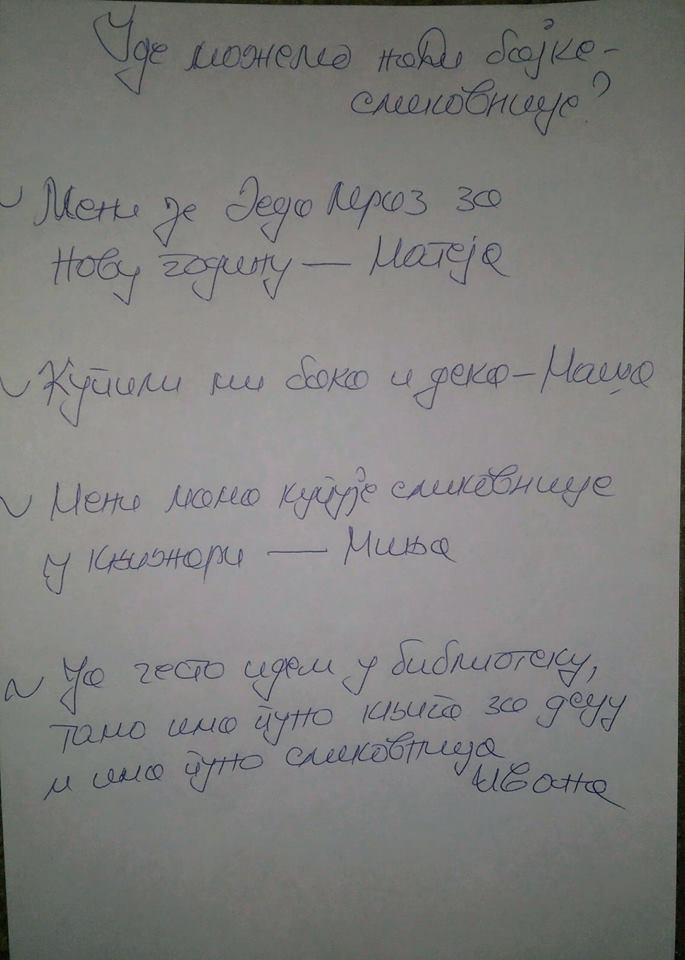 Где можемо наћи бајке-
сликовнице?
Мени је Деда Мраз за
Нову годину — Матеја
Купили ми бака и дека - Маша
Мени мама купује сликовнице
у књижари — Миња
Ја често идем у библиотеку,
тамо има пуно књига за децу
и има пуно сликовница
Ивана